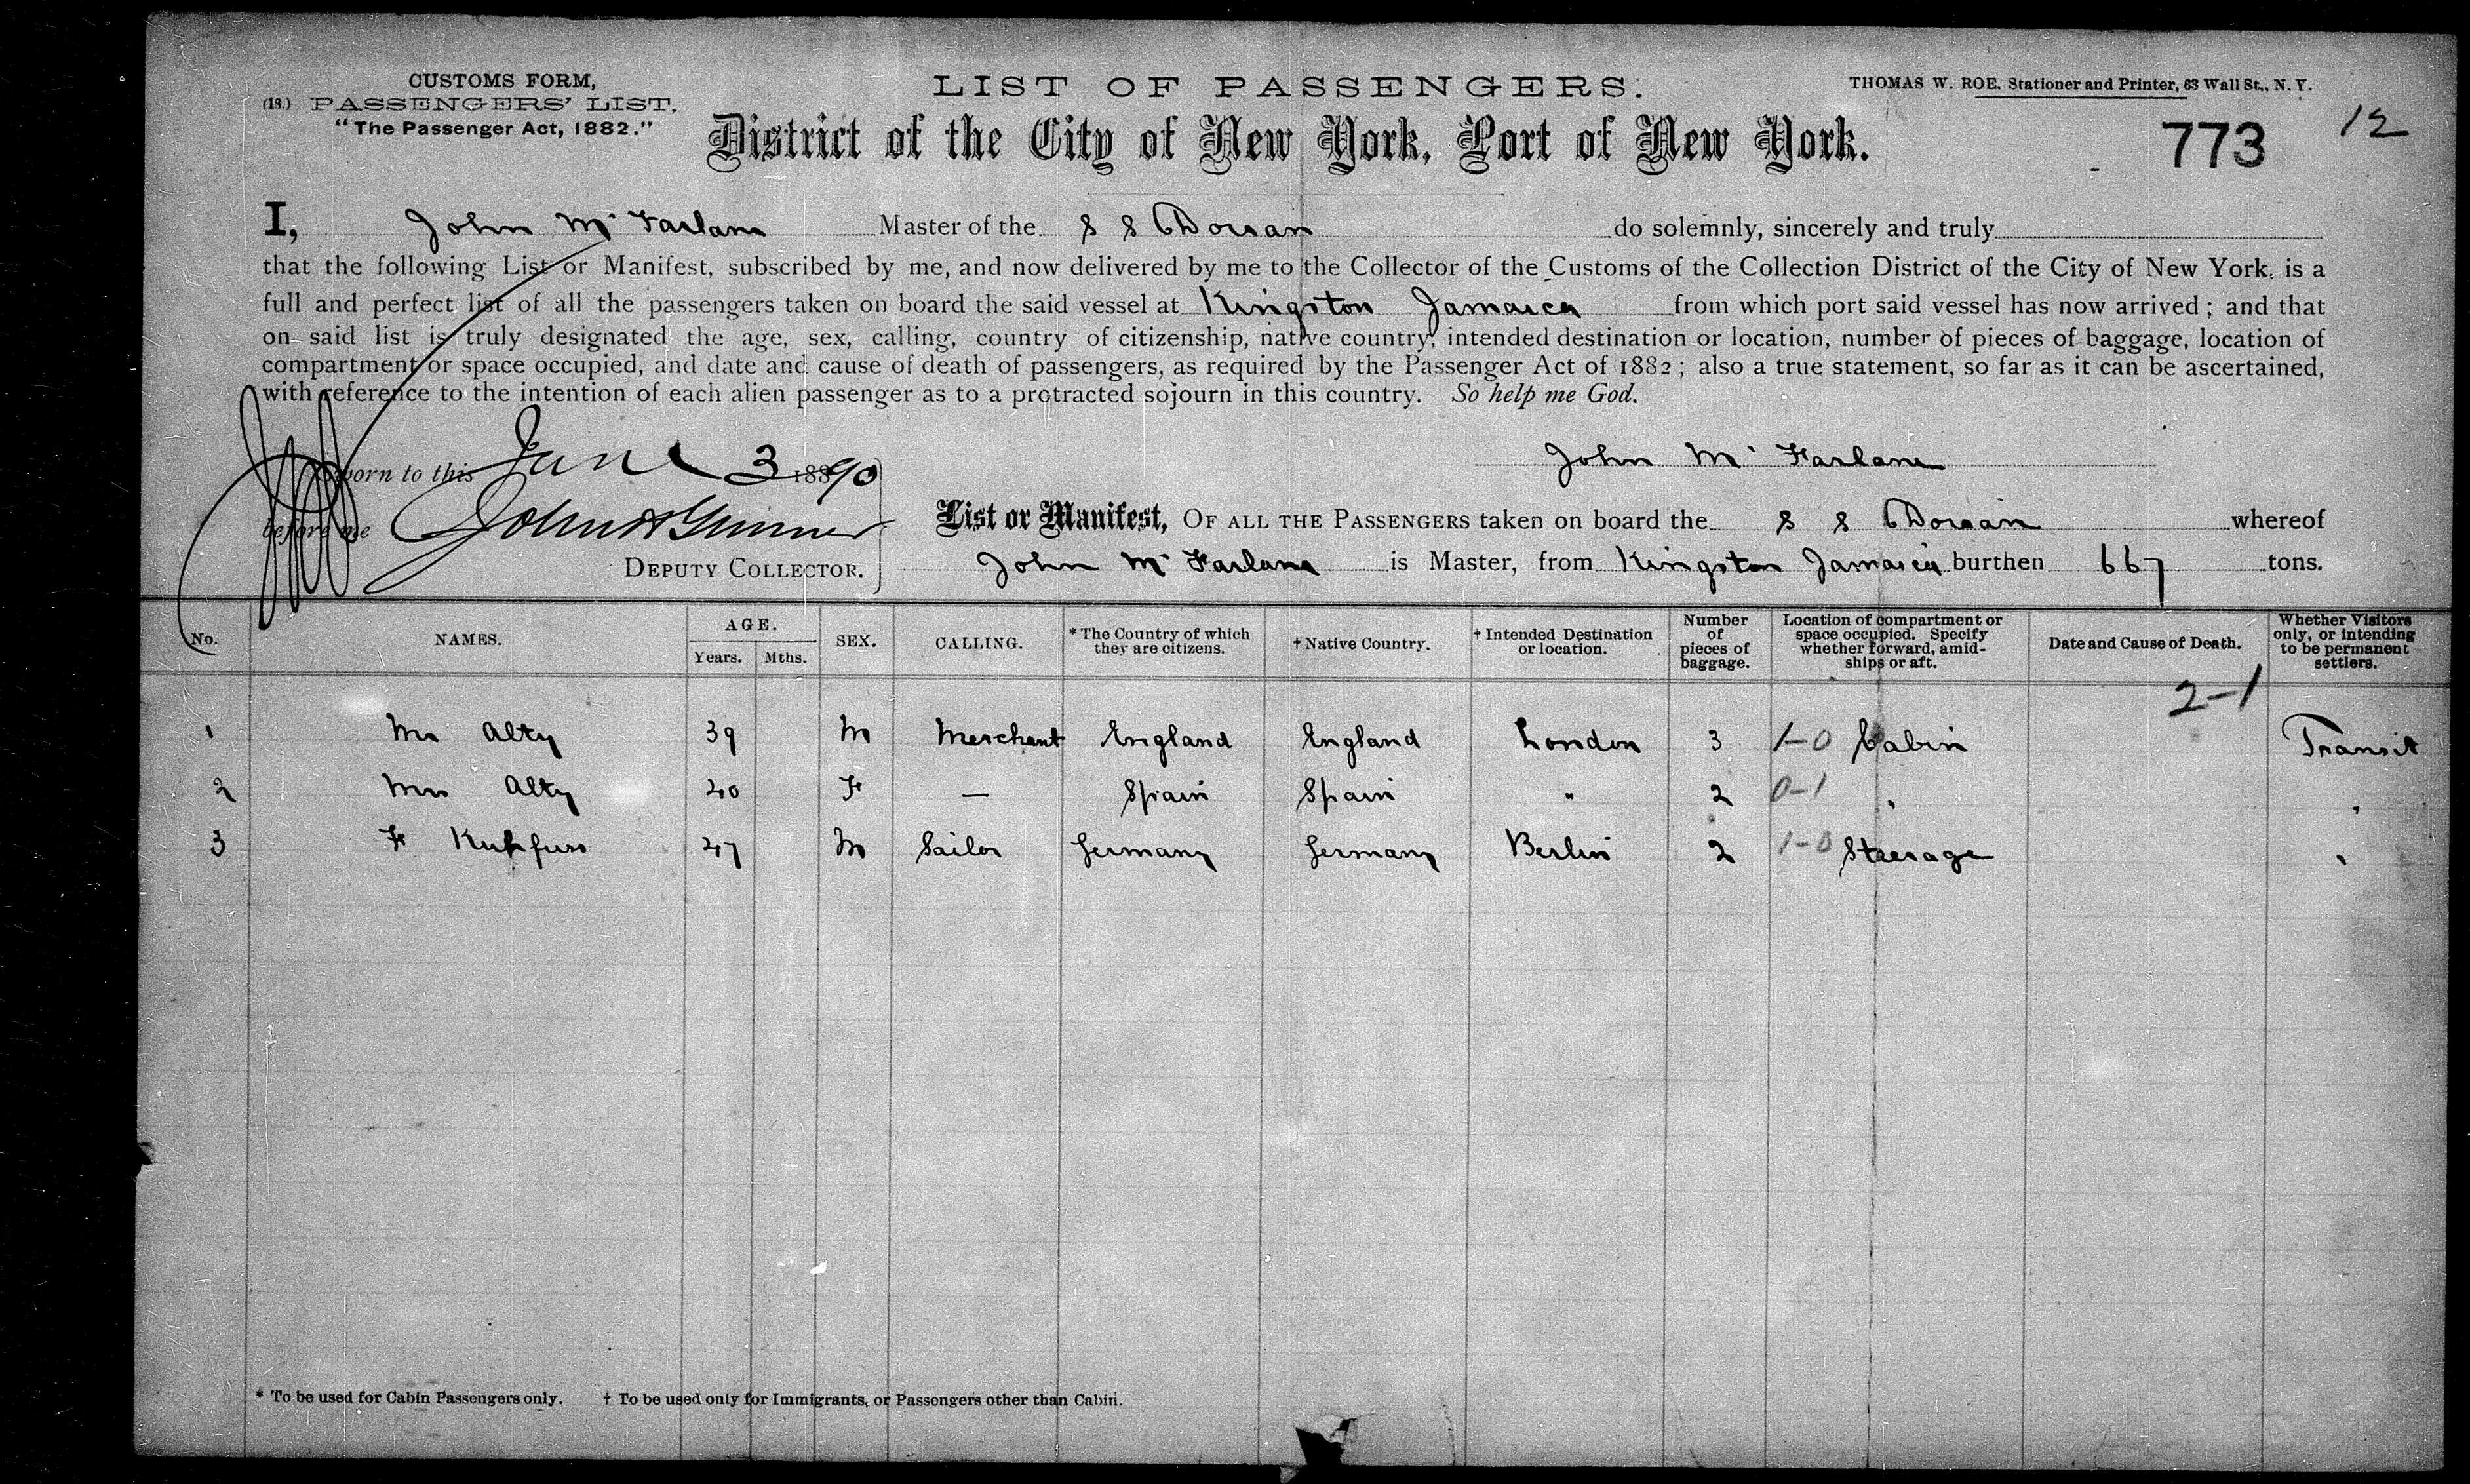 CUSTOMS FORM,
(18.) PASSENGERS' LIST.
"The Passenger Act, 1882."
LIST OF PASSENGERS.
THOMAS W. ROE. Stationer and Printer, 63 Wall St., N. Y.
District of the City of New York, Port of New York.
773 12
I, John McFarlane Master of the S S Dorian do solemnly, sincerely and truly
that the following List or Manifest, subscribed by me, and now delivered by me to the Collector of the Customs of the Collection District of the City of New York, is a
full and perfect list of all the passengers taken on board the said vessel at Kingston Jamaica from which port said vessel has now arrived; and that
on said list is truly designated the age, sex, calling, country of citizenship, native country, intended destination or location, number of pieces of baggage, location of
compartment or space occupied, and date and cause of death of passengers, as required by the Passenger Act of 1882; also a true statement, so far as it can be ascertained,
with reference to the intention of each alien passenger as to a protracted sojourn in this country. So help me God.
John McFarlane
Sworn to this June 3 1890
before me John
DEPUTY COLLECTOR.
List or Manifest, OF ALL THE PASSENGERS taken on board the S S Dorian whereof
John McFarlane is Master, from Kingston Jamaica burthen 667 tons.
No. NAMES. AGE. Years. Mths. SEX. CALLING. * The Country of which they are citizens. † Native Country. † Intended Destination or location. Number of pieces of baggage. Location of compartment or space occupied. Specify whether forward, amidships or aft. Date and Cause of Death. Whether Visitors only, or intending to be permanent settlers.
2-1
1 Mr Alty 39 M Merchant England England London 3 1-0 Cabin Transit
2 Mrs Alty 40 F — Spain Spain " 2 0-1 " "
3 F Kuhfuss 27 M Sailor Germany Germany Berlin 2 1-0 Steerage "
* To be used for Cabin Passengers only. † To be used only for Immigrants, or Passengers other than Cabin.